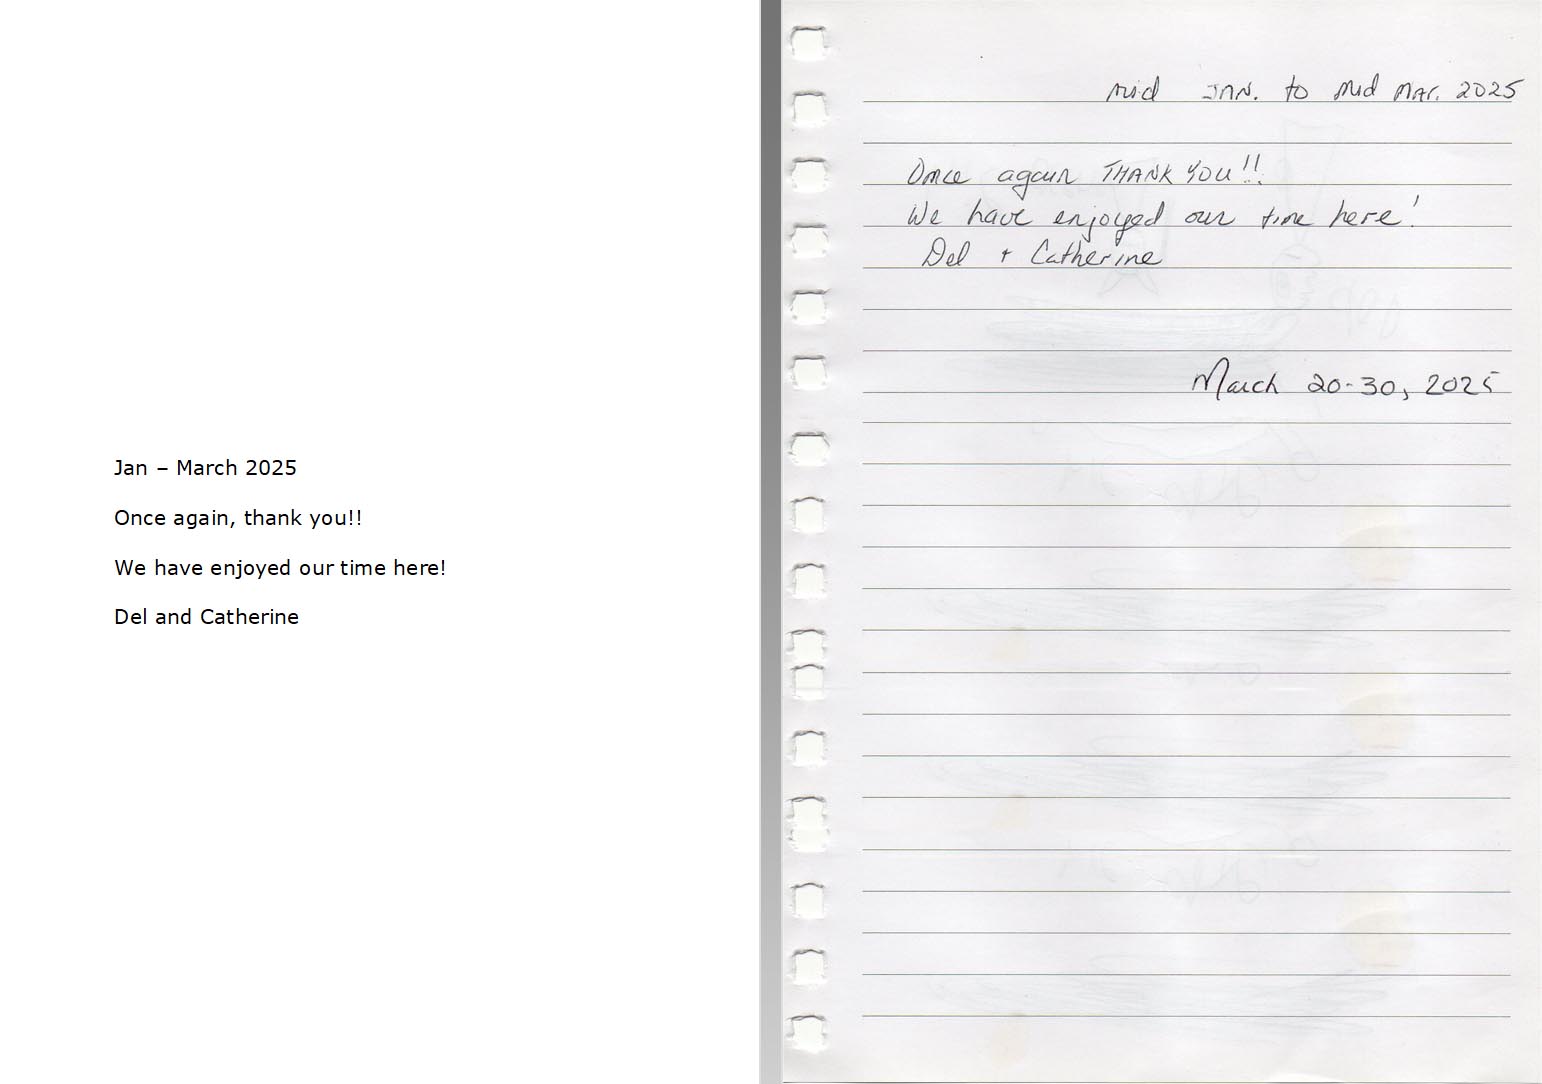 Jan – March 2025
Once again, thank you!!
We have enjoyed our time here!
Del and Catherine
mid JAN. to mid MAR. 2025
Once again THANK YOU!!
We have enjoyed our time here!
Del + Catherine
March 20-30, 2025